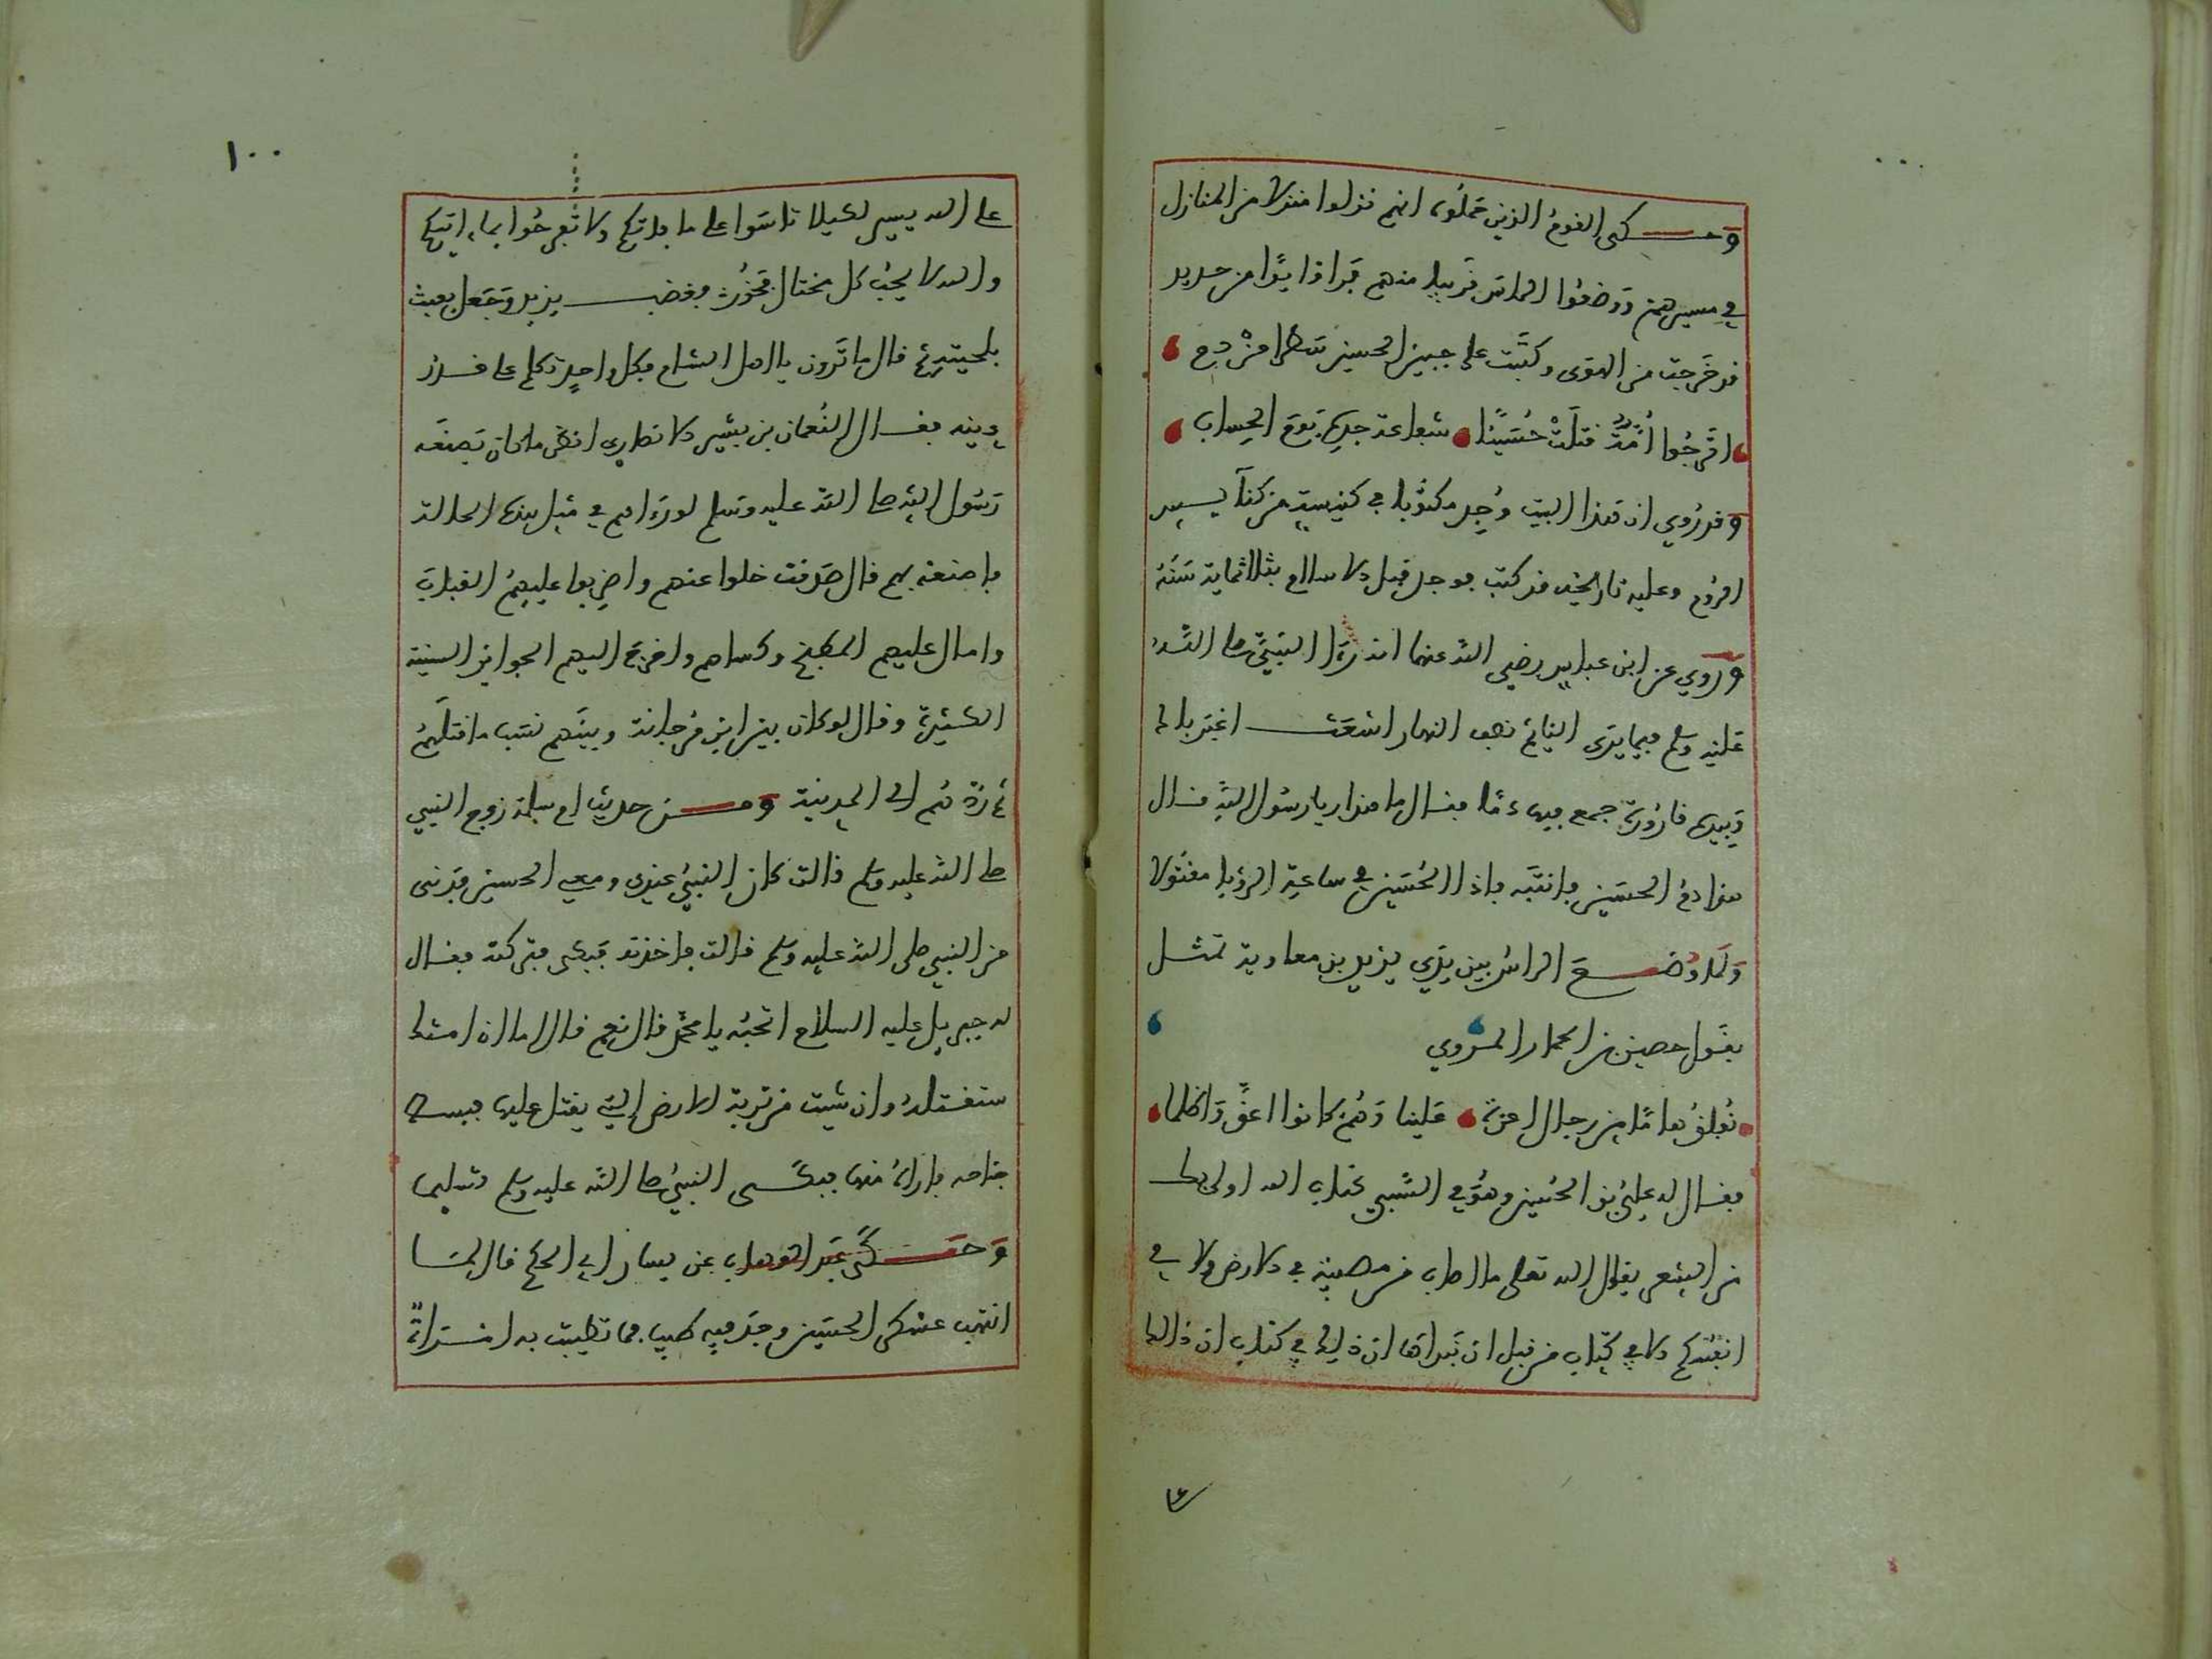 وحكى القوم الذين حملوه انهم نزلوا منزلا من المنازل
في مسيرهم ووضعوا الراس قريبا منهم فراوا يدا من حديد
قد خرجت من الهوى وكتبت على جبين الحسين سطرا من دم
اترجوا امة قتلت حسينا شفاعة جده يوم الحساب
وقد روي ان هذا البيت وجد مكتوبا في كنيسة من كنايس
الروم وعليه تاريخه قد كتب فوجد قبل الاسلام بثلاثماية سنة
وروي عن ابن عباس رضي الله عنهما انه راا النبي صلى الله
عليه وسلم فيما يرى النايم نصف النهار اشعث اغبر
وبيده قارورة جمع فيها دما فقال ما هذا يا رسول الله قال
هذا دم الحسين فانتبه فاذا الحسين في ساعة الرؤيا مقتولا
ولما وضع الراس بين يدي يزيد بن معاوية تمثل
بقول حصين بن الحمام المروي
نفلق هاما من رجال اعزة علينا وهم كانوا اعق واظلما
فقال له علي بن الحسين وهو في السبي كتاب الله اولى بك
من الشعر يقول الله تعلى ما اصاب من مصيبة في الارض ولا في
انفسكم الا في كتاب من قبل ان نبراها ان ذلك في كتاب ان ذالك
١٠٠
على الله يسير لكيلا تاسوا على ما فاتكم ولا تفرحوا بما اتيكم
والله لا يحب كل مختال فخور فغضب يزيد وجعل يعبث
بلحيته قال ما ترون يا اهل الشام فكل واحد تكلم على قدر
دينه فقال النعمان بن بشير الانصاري انظر ما كان يصنعه
رسول الله صلى الله عليه وسلم لو راهم في مثل هذه الحالة
فاصنعه بهم قال صدقت خلوا عنهم واضربوا عليهم القباب
وامال عليهم المطبخ وكساهم واخرج اليهم الجوايز السنية
الكثيرة وقال لو كان بين ابن مرجانة وبينهم نسب ما قتلهم
ثم ردهم الى المدينة ومن حديث ام سلمة زوج النبي
صلى الله عليه وسلم قالت كان النبي عندي ومعي الحسين فدنى
من النبي صلى الله عليه وسلم قالت فاخذته فبكى فتركته فقال
له جبريل عليه السلام اتحبه يا محمد قال نعم قال اما ان امتك
ستقتله وان شيت من تربة الارض التي يقتل عليها فبسط
جناحه فاراه منها فبكى النبي صلى الله عليه وسلم
وحكى عبد الوهاب عن يسار ابي الحكم قال لما
انتهب عسكر الحسين وجد فيه طيب فما تطيبت به امراة